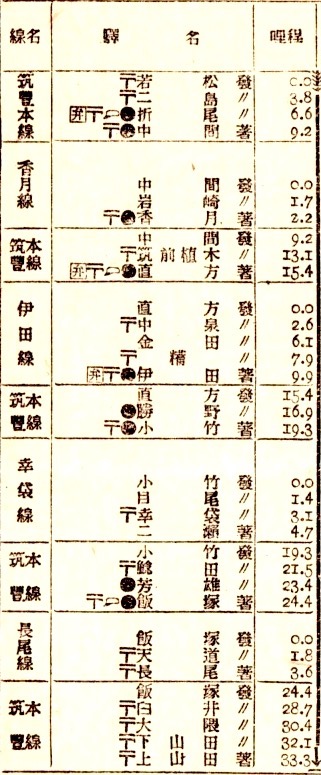 線名 驛名 哩程
筑豐本線
〒若松 發 0.0
〒二島 〃 3.8
弁〒折尾 〃 6.6
〒中間 著 9.2
香月線
中間 發 0.0
岩崎 〃 1.7
〒香月 著 2.2
筑豐本線
中間 發 9.2
〒筑前植木 〃 13.1
弁〒直方 著 15.4
伊田線
直方 發 0.0
〒中泉 〃 2.6
金田 〃 6.1
〒糒 〃 7.9
弁〒伊田 著 9.9
筑豐本線
直方 發 15.4
勝野 〃 16.9
〒小竹 著 19.3
幸袋線
小竹 發 0.0
目尾 〃 1.4
〒幸袋 〃 3.1
二瀬 著 4.7
筑豐本線
小竹 發 19.3
〒鯰田 〃 21.5
芳雄 〃 23.4
〒飯塚 著 24.4
長尾線
飯塚 發 0.0
〒天道 〃 1.8
〒長尾 著 3.6
筑豐本線
飯塚 發 24.4
〒臼井 〃 28.7
〒大隈 〃 30.4
〒下山田 〃 32.1
〒上山田 著 33.3